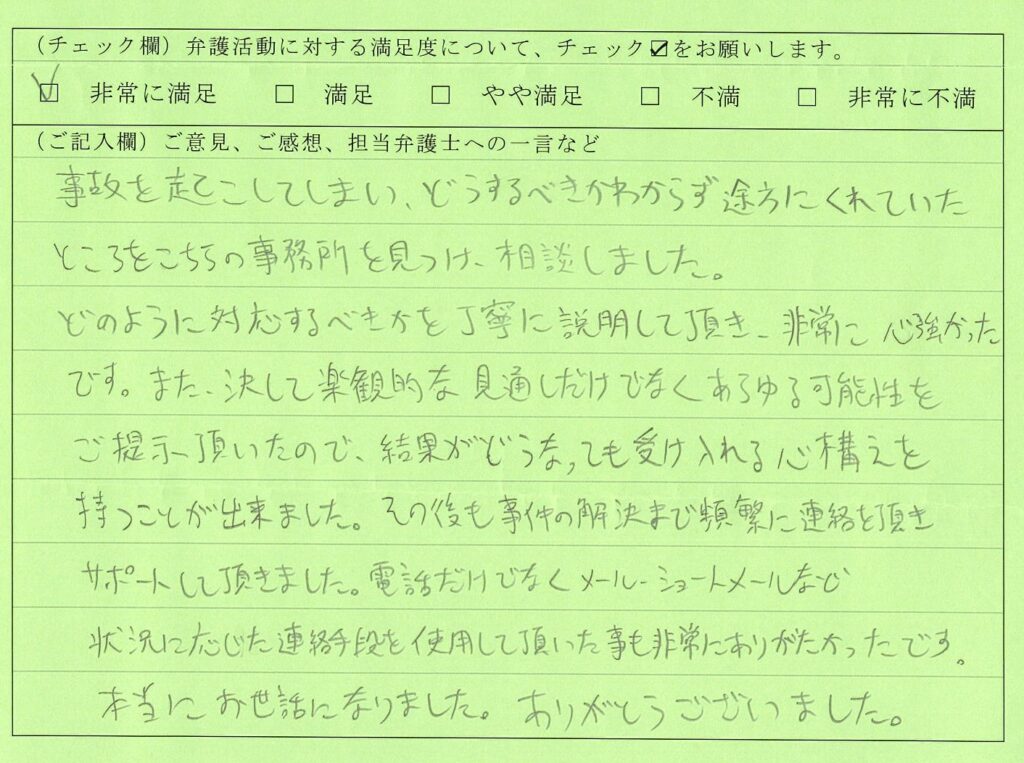 （チェック欄）弁護活動に対する満足度について、チェック☑をお願いします。
☑ 非常に満足 □ 満足 □ やや満足 □ 不満 □ 非常に不満
（ご記入欄）ご意見、ご感想、担当弁護士への一言など
事故を起こしてしまい、どうするべきかわからず途方にくれていた
ところをこちらの事務所を見つけ、相談しました。
どのように対応するべきかを丁寧に説明して頂き、非常に心強かった
です。また、決して楽観的な見通しだけでなくあらゆる可能性を
ご提示頂いたので、結果がどうなっても受け入れる心構えを
持つことが出来ました。その後も事件の解決まで頻繁に連絡を頂き
サポートして頂きました。電話だけでなくメール・ショートメールなど
状況に応じた連絡手段を使用して頂いた事も非常にありがたかったです。
本当にお世話になりました。ありがとうございました。